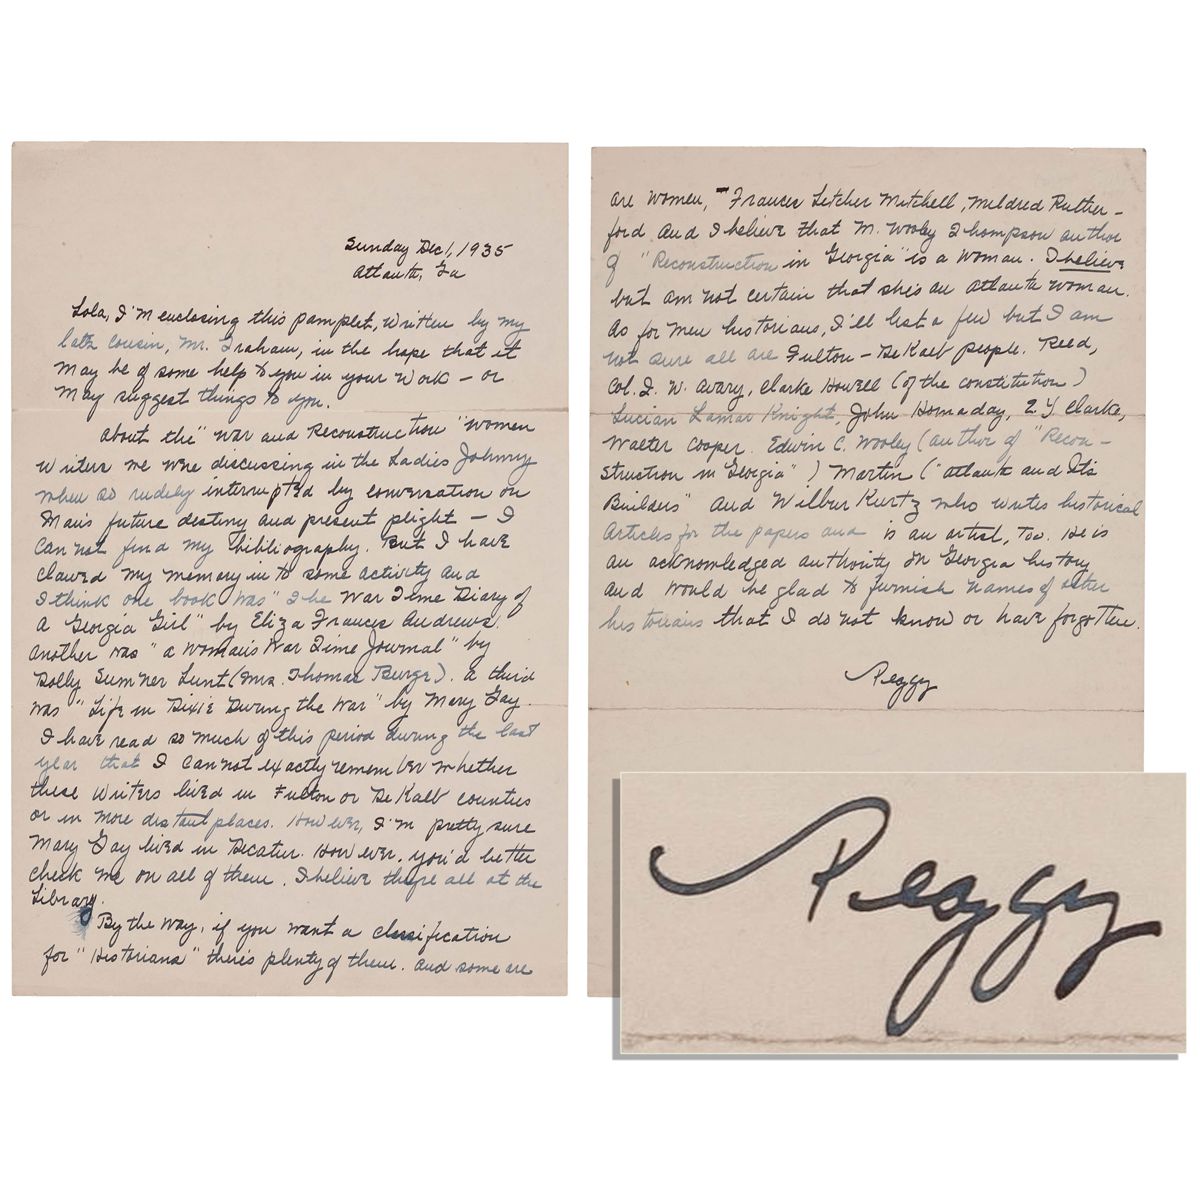 Sunday Dec 1, 1935
Atlanta, Ga
Lola, I'm enclosing this pamplet, written by my
late cousin, Mr. Graham, in the hope that it
may be of some help to you in your work – or
may suggest things to you.
About the "War and Reconstruction" women
writers we were discussing in the Ladies Johnny
when so rudely interrupted by conversation on
Man's future destiny and present plight – I
can not find my bibliography. But I have
clawed my memory in to some activity and
I think one book was "The War Time Diary of
a Georgia Girl" by Eliza Frances Andrews.
Another was "a Woman's War Time Journal" by
Dolly Sumner Lunt (Mrs. Thomas Burge). A third
was "Life in Dixie During the War" by Mary Gay.
I have read so much of this period during the last
year that I can not exactly remember whether
these writers lived in Fulton or De Kalb counties
or in more distant places. However, I'm pretty sure
Mary Gay lived in Decatur. However, you'd better
check me on all of them. I believe they're all at the
Library.
By the way, if you want a classification
for "Historians" there's plenty of them. And some are
are women, – Frances Letcher Mitchell, Mildred Ruther-
ford and I believe that M. Wooly Thompson author
of "Reconstruction in Georgia" is a woman. I believe
but am not certain that she's an Atlanta woman.
As for men historians, I'll list a few but I am
not sure all are Fulton – De Kalb people. Reed,
Col. I. W. Avary, Clarke Howell (of the constitution)
Lucian Lamar Knight, John Hornaday, E Y. Clarke,
Walter Cooper. Edwin C. Wooley (author of "Recon-
struction in Georgia") Martin ("Atlanta and Its
Builders" and Wilbur Kurtz who writes historical
articles for the papers and is an artist, too. He is
an acknowledged authority on Georgia history
and would be glad to furnish names of other
historians that I do not know or have forgotten.
Peggy
Peggy